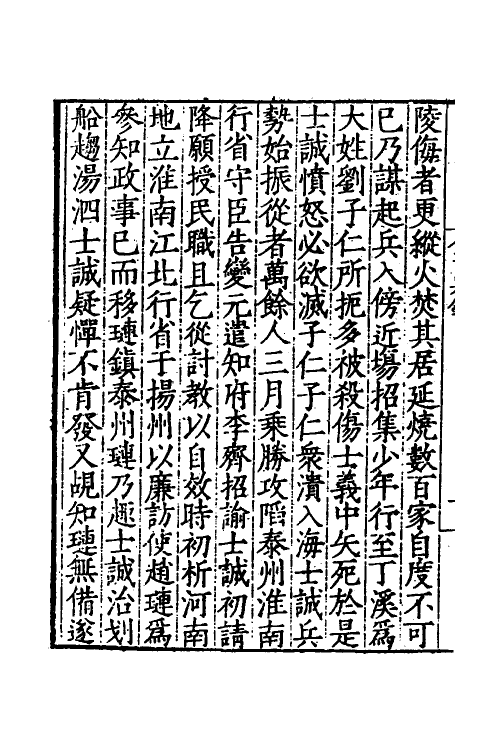 陵侮者更縱火焚其居延燒數百家自度不可
已乃謀起兵入傍近場招集少年行至丁溪爲
大姓劉子仁所扼多被殺傷士義中矢死於是
士誠憤怒必欲滅子仁子仁衆潰入海士誠兵
勢始振從者萬餘人三月乘勝攻䧟泰州淮南
行省守臣告變元遣知府李齊招諭士誠初請
降願授民職且乞從討教以自效時初析河南
地立淮南江北行省于揚州以廉訪使趙璉爲
參知政事已而移璉鎮泰州璉乃趣士誠治划
船趨湯泗士誠疑憚不肯發又覘知璉無備遂